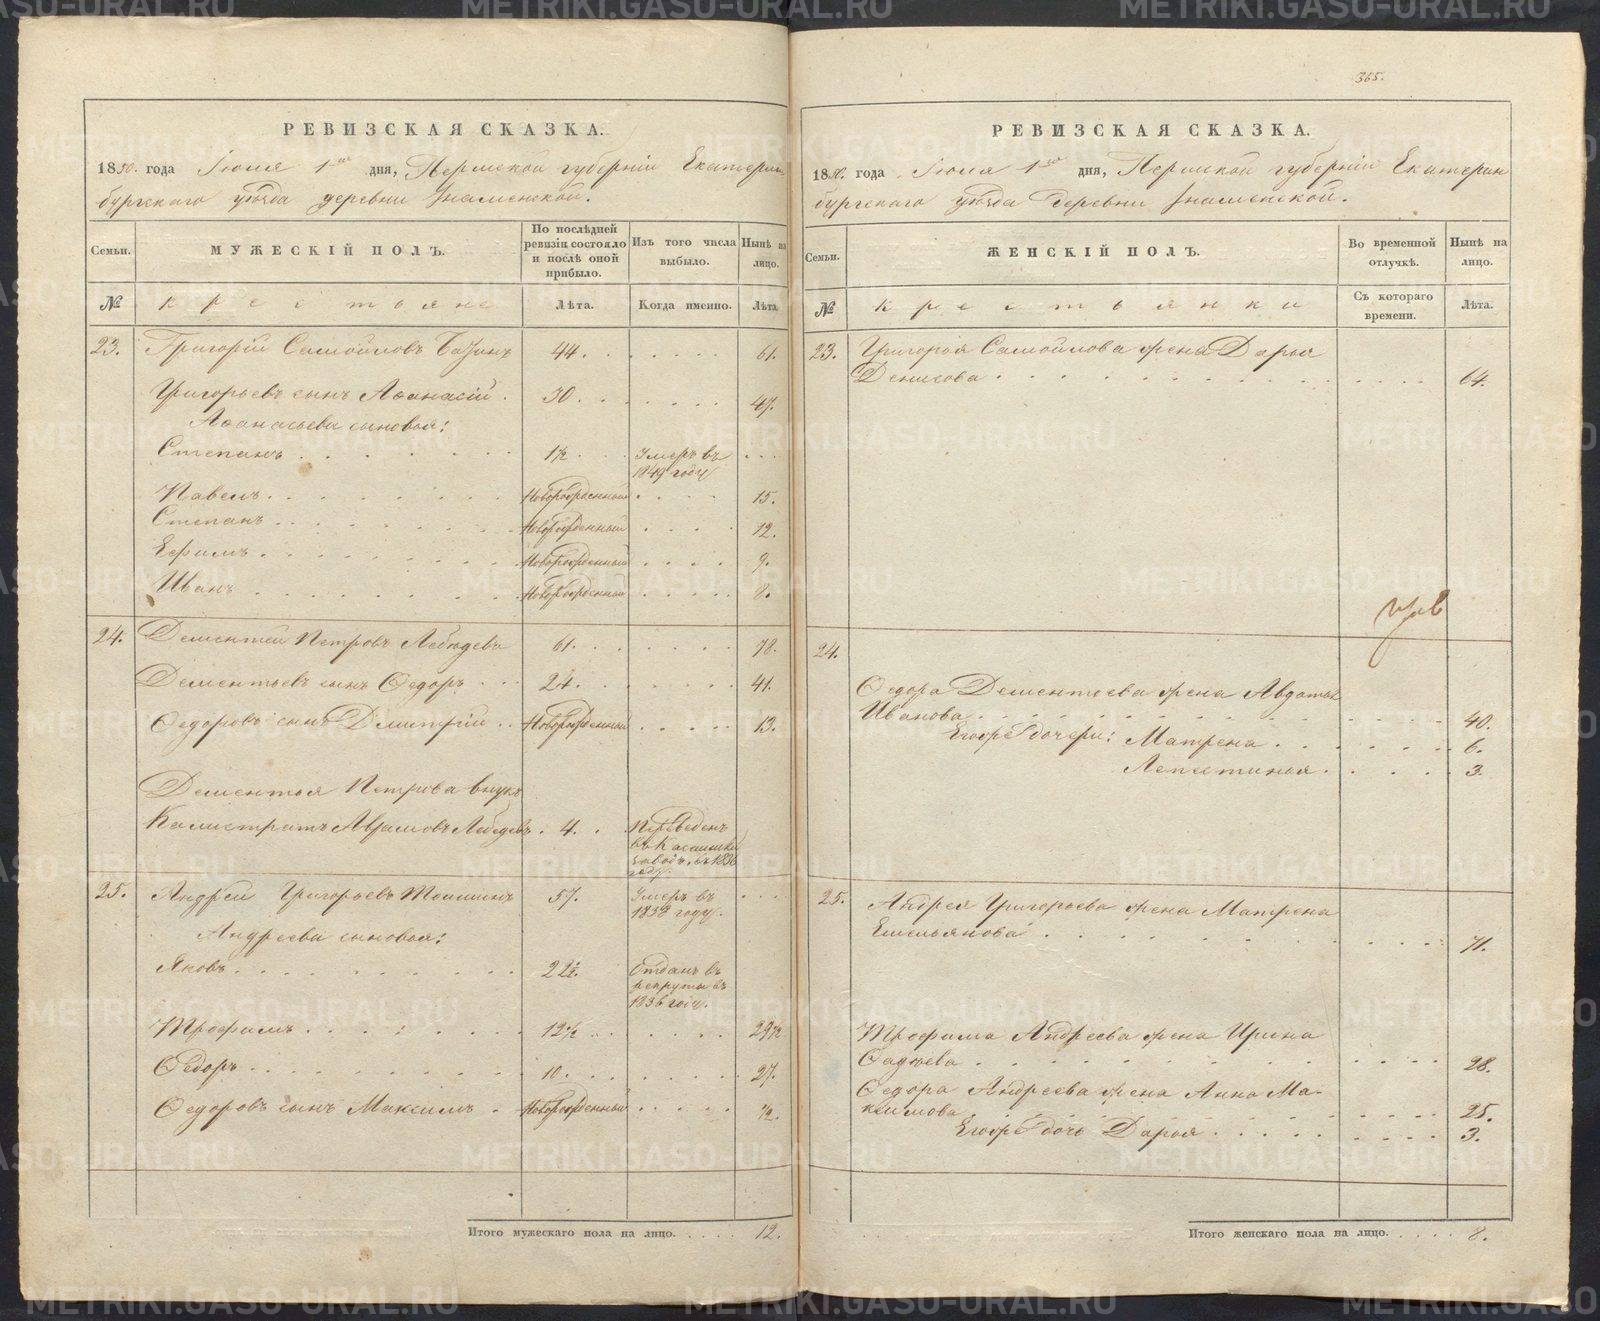 365.
РЕВИЗСКАЯ СКАЗКА.
1850. года Іюля 1го дня, Пермской губерніи Екатерин
бургскаго уѣзда деревни Знаменской.
Семьи.
МУЖЕСКІЙ ПОЛЪ.
По послѣдней ревизіи состояло и послѣ оной прибыло.
Изъ того числа выбыло.
Нынѣ на лицо.
№
крестьяне
Лѣта.
Когда именно.
Лѣта.
23. Григорій Самойловъ 44. 61.
Григорьевъ сынъ Аѳанасій. 30. 47.
Аѳанасьевы сыновья:
Степанъ 1½ Умеръ въ
1849 году
Павелъ Новорожденный 15.
Степанъ Новорожденный 12.
Ефимъ Новорожденный 9.
Иванъ Новорожденный 8.
24. Дементей Петровъ Лебедевъ 61. 78.
Дементьевъ сынъ Ѳедоръ 24. 41.
Ѳедоровъ сынъ Дмитрій Новорожденный 13.
Дементья Петрова внукъ
Калистратъ Аврамовъ Лебедевъ 4. Переведенъ
въ
заводъ въ 1836
году.
25. Андрей Григорьевъ 57. Умеръ въ
1838 году.
Андреевы сыновья:
Яковъ 22½. Отданъ въ
рекруты въ
1836 году.
Трофимъ 12½ 29½
Ѳедоръ 10. 27.
Ѳедоровъ сынъ Максимъ Новорожденный ½.
Итого мужескаго пола на лицо. 12.
РЕВИЗСКАЯ СКАЗКА.
1850. года Іюля 1го дня, Пермской губерніи Екатерин
бургскаго уѣзда деревни Знаменской.
Семьи.
ЖЕНСКІЙ ПОЛЪ.
Во временной отлучкѣ.
Нынѣ на лицо.
№
крестьянки
Съ котораго времени.
Лѣта.
23. Григорья Самойлова жена Дарья
Денисова 64.
24.
Ѳедора Дементьева жена Авдотья
Иванова 40.
Егожъ дочери: Матрена 6.
Апестинья 3.
25. Андрея Григорьева жена Матрена
Емельянова 71.
Трофима Андреева жена Ирина
28.
Ѳедора Андреева жена Анна Ма-
ксимова 25.
Егожъ дочь Дарья 3.
Итого женскаго пола на лицо. 8.
METRIKI.GASO-URAL.RU